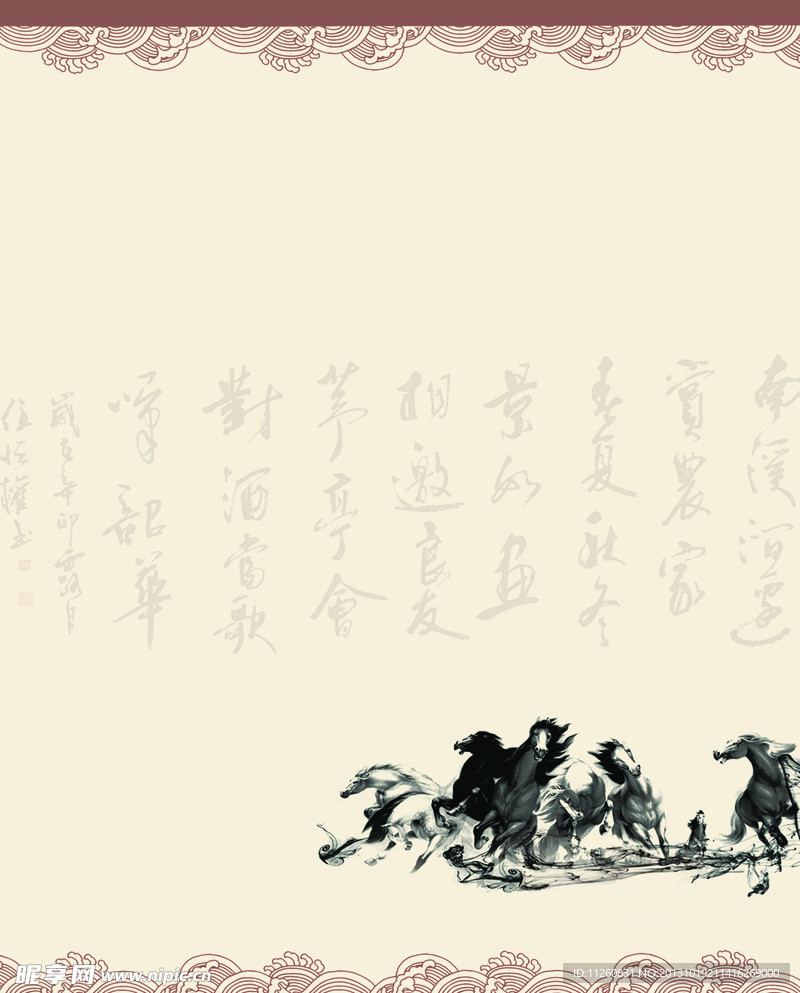 南溪涧边
赏農家
春夏秋冬
景如画
相邀良友
茅亭會
對酒當歌
嘆韶華
歲在辛卯露月
昵享网 www.nipic.cn
ID:11260631 NO:20131019211416269000